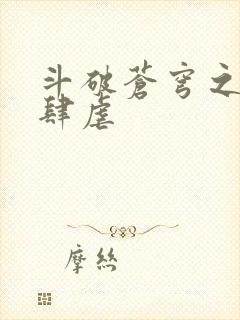 斗破苍穹之
肆虐
摩丝